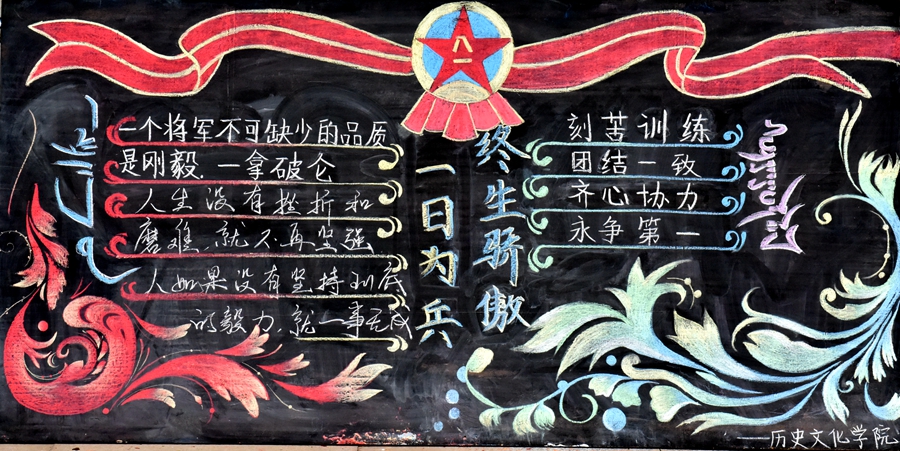 一个将军不可缺少的品质
是刚毅.一拿破仑
人生没有挫折和
磨难,就不再坚强
人如果没有坚持到底
的毅力,就一事无成
一日为兵
终生骄傲
刻苦训练
团结一致
齐心协力
永争第一
——历史文化学院